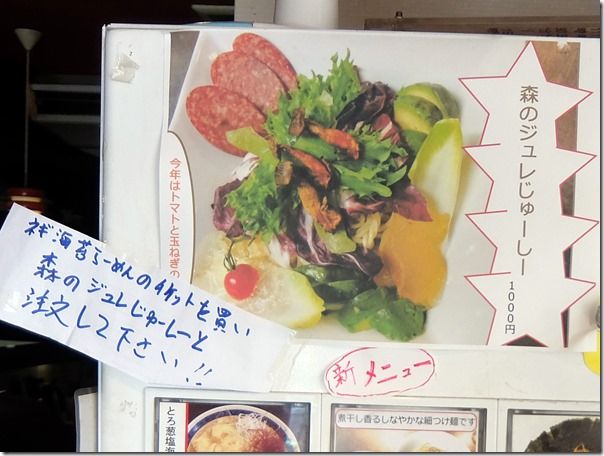 森のジュレじゅーしー
1000円
今年はトマトと玉ねぎの
ネギ海苔らーめんのチケットを買い
森のジュレじゅーしーと
注文して下さい!!
新メニュー
とろ葱塩海
煮干し香るしなやかな細つけ麺です